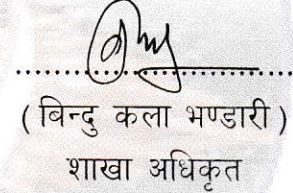 ( बिन्दु कला भण्डारी )
शाखा अधिकृत